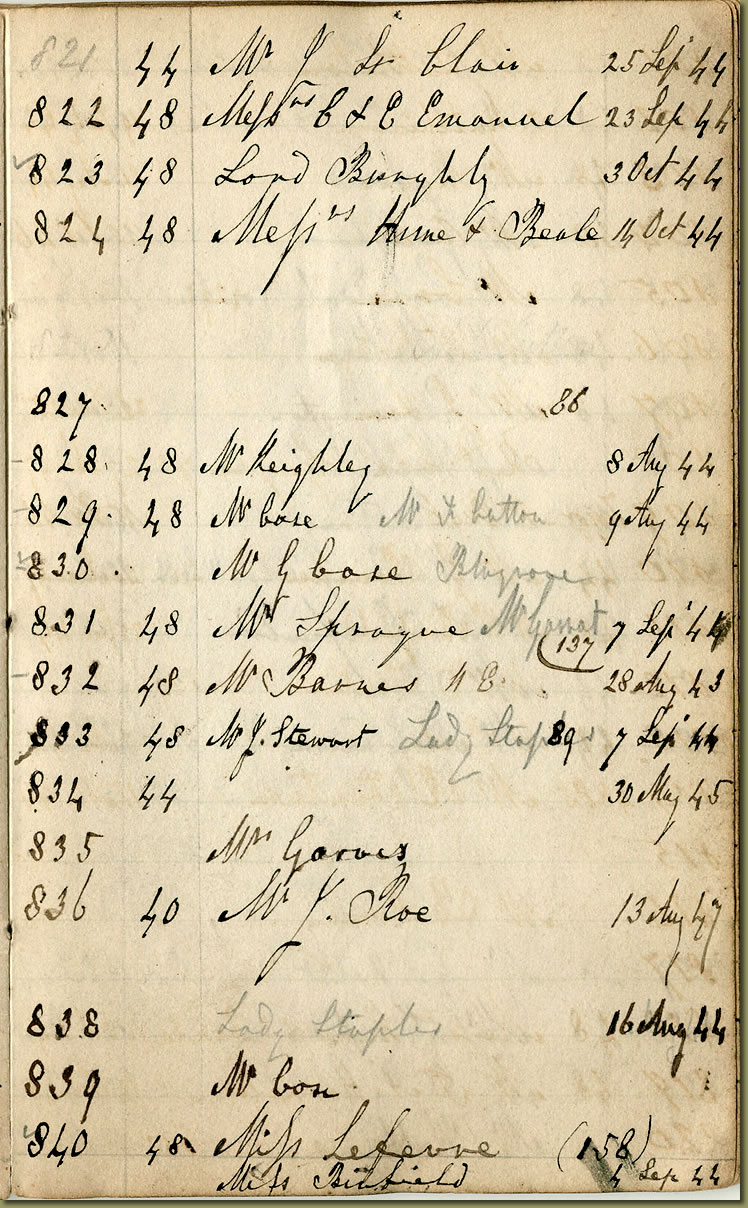 821 44 Mr J St Clair 25 Sep 44
822 48 Messrs C & E Emanuel 23 Sep 44
823 48 Lord Burghly 3 Oct 44
824 48 Messrs Hume & Beale 14 Oct 44
827 86
828 48 Mr Keighley 8 Aug 44
829 48 Mr Case Mr 9 Aug 44
830 Mr G Case
831 48 Mr Sprague Mr 7 Sep 44
(137
832 48 Mr Barnes 28 Aug 43
833 48 Mr J. Stewart Lady 89 7 Sep 44
834 44 30 May 45
835
836 40 Mr J. Roe 13 Aug 47
838 Lady Stapler 16 Aug 44
839 Mr
840 48 Miss Lefevre (158)
Miss Binfield 4 Sep 44